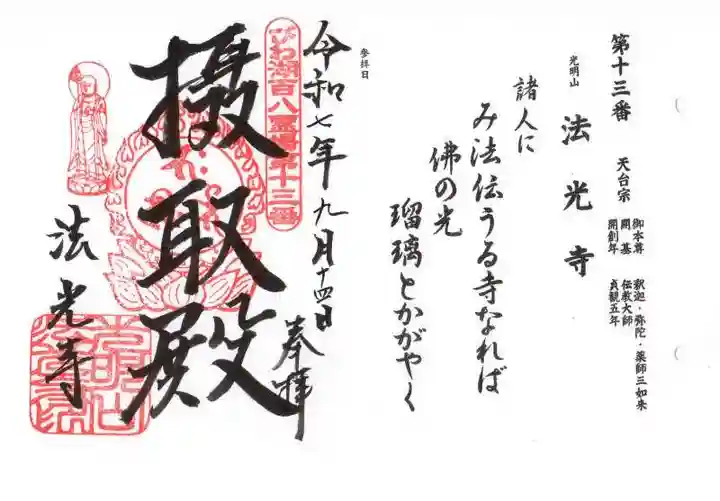 第十三番　天台宗
御本尊　釈迦・弥陀・薬師三如来
開基　伝教大師
開創年　貞観五年
光明山
法光寺
諸人に
み法伝うる寺なれば
佛の光
瑠璃とかがやく
参拝日
令和七年九月十四日
奉拝
びわ湖百八霊場第十三番
摂取殿
法光寺